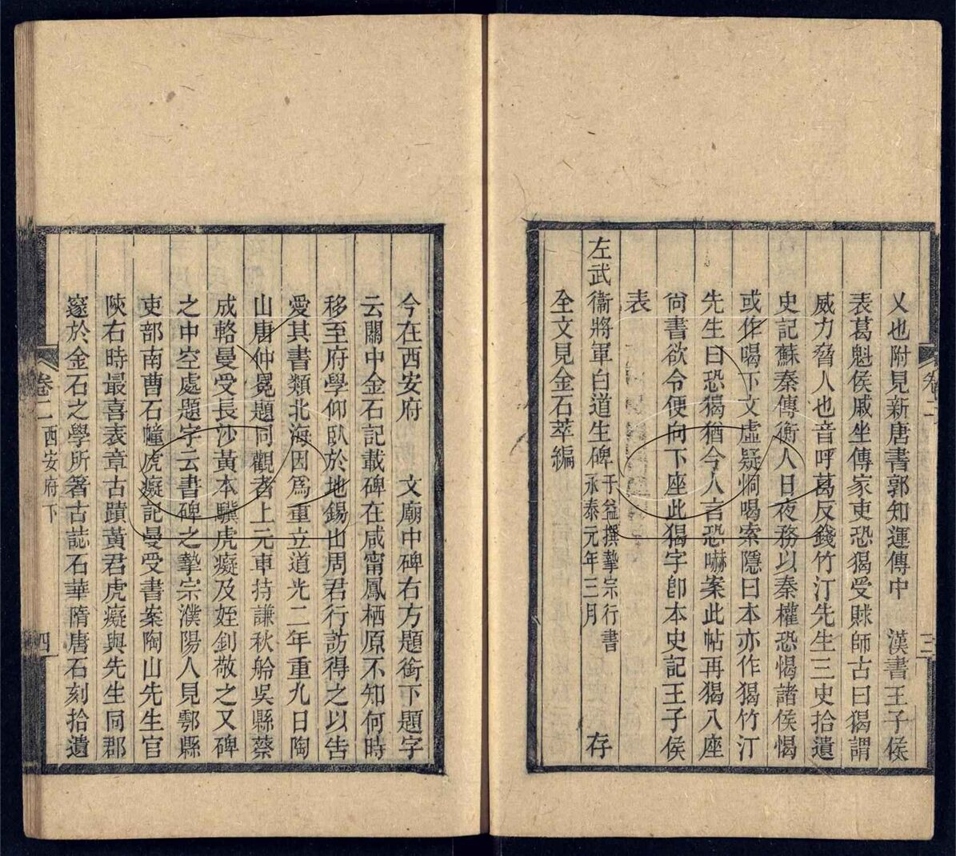 乂也附見新唐書郭知運傳中　漢書王子侯
表葛魁侯戚坐傳家吏恐猲受賕師古曰猲謂
威力脅人也音呼葛反錢竹汀先生三史拾遺
史記蘇秦傳衡人日夜務以秦權恐愒諸侯愒
或作喝下文虛疑恫喝索隱曰本亦作猲竹汀
先生曰恐猲猶今人言恐嚇案此帖再猲八座
尚書欲令便向下座此猲字卽本史記王子侯
表
左武衞將軍白道生碑 于益撰摯宗行書 永泰元年三月 存
全文見金石萃編
卷二
三
今在西安府　文廟中碑右方題銜下題字
云關中金石記載碑在咸甯鳳栖原不知何時
移至府學仰臥於地錫山周君行訪得之以告
愛其書類北海因爲重立道光二年重九日陶
山唐仲冕題同觀者上元車持謙秋舲吳縣蔡
成輅曼受長沙黃本驥虎癡及姪釗敬之又碑
之中空處題字云書碑之摯宗濮陽人見鄠縣
吏部南曹石幢虎癡記曼受書案陶山先生官
陝右時最喜表章古蹟黃君虎癡與先生同郡
邃於金石之學所箸古誌石華隋唐石刻拾遺
卷二 西安府下
四